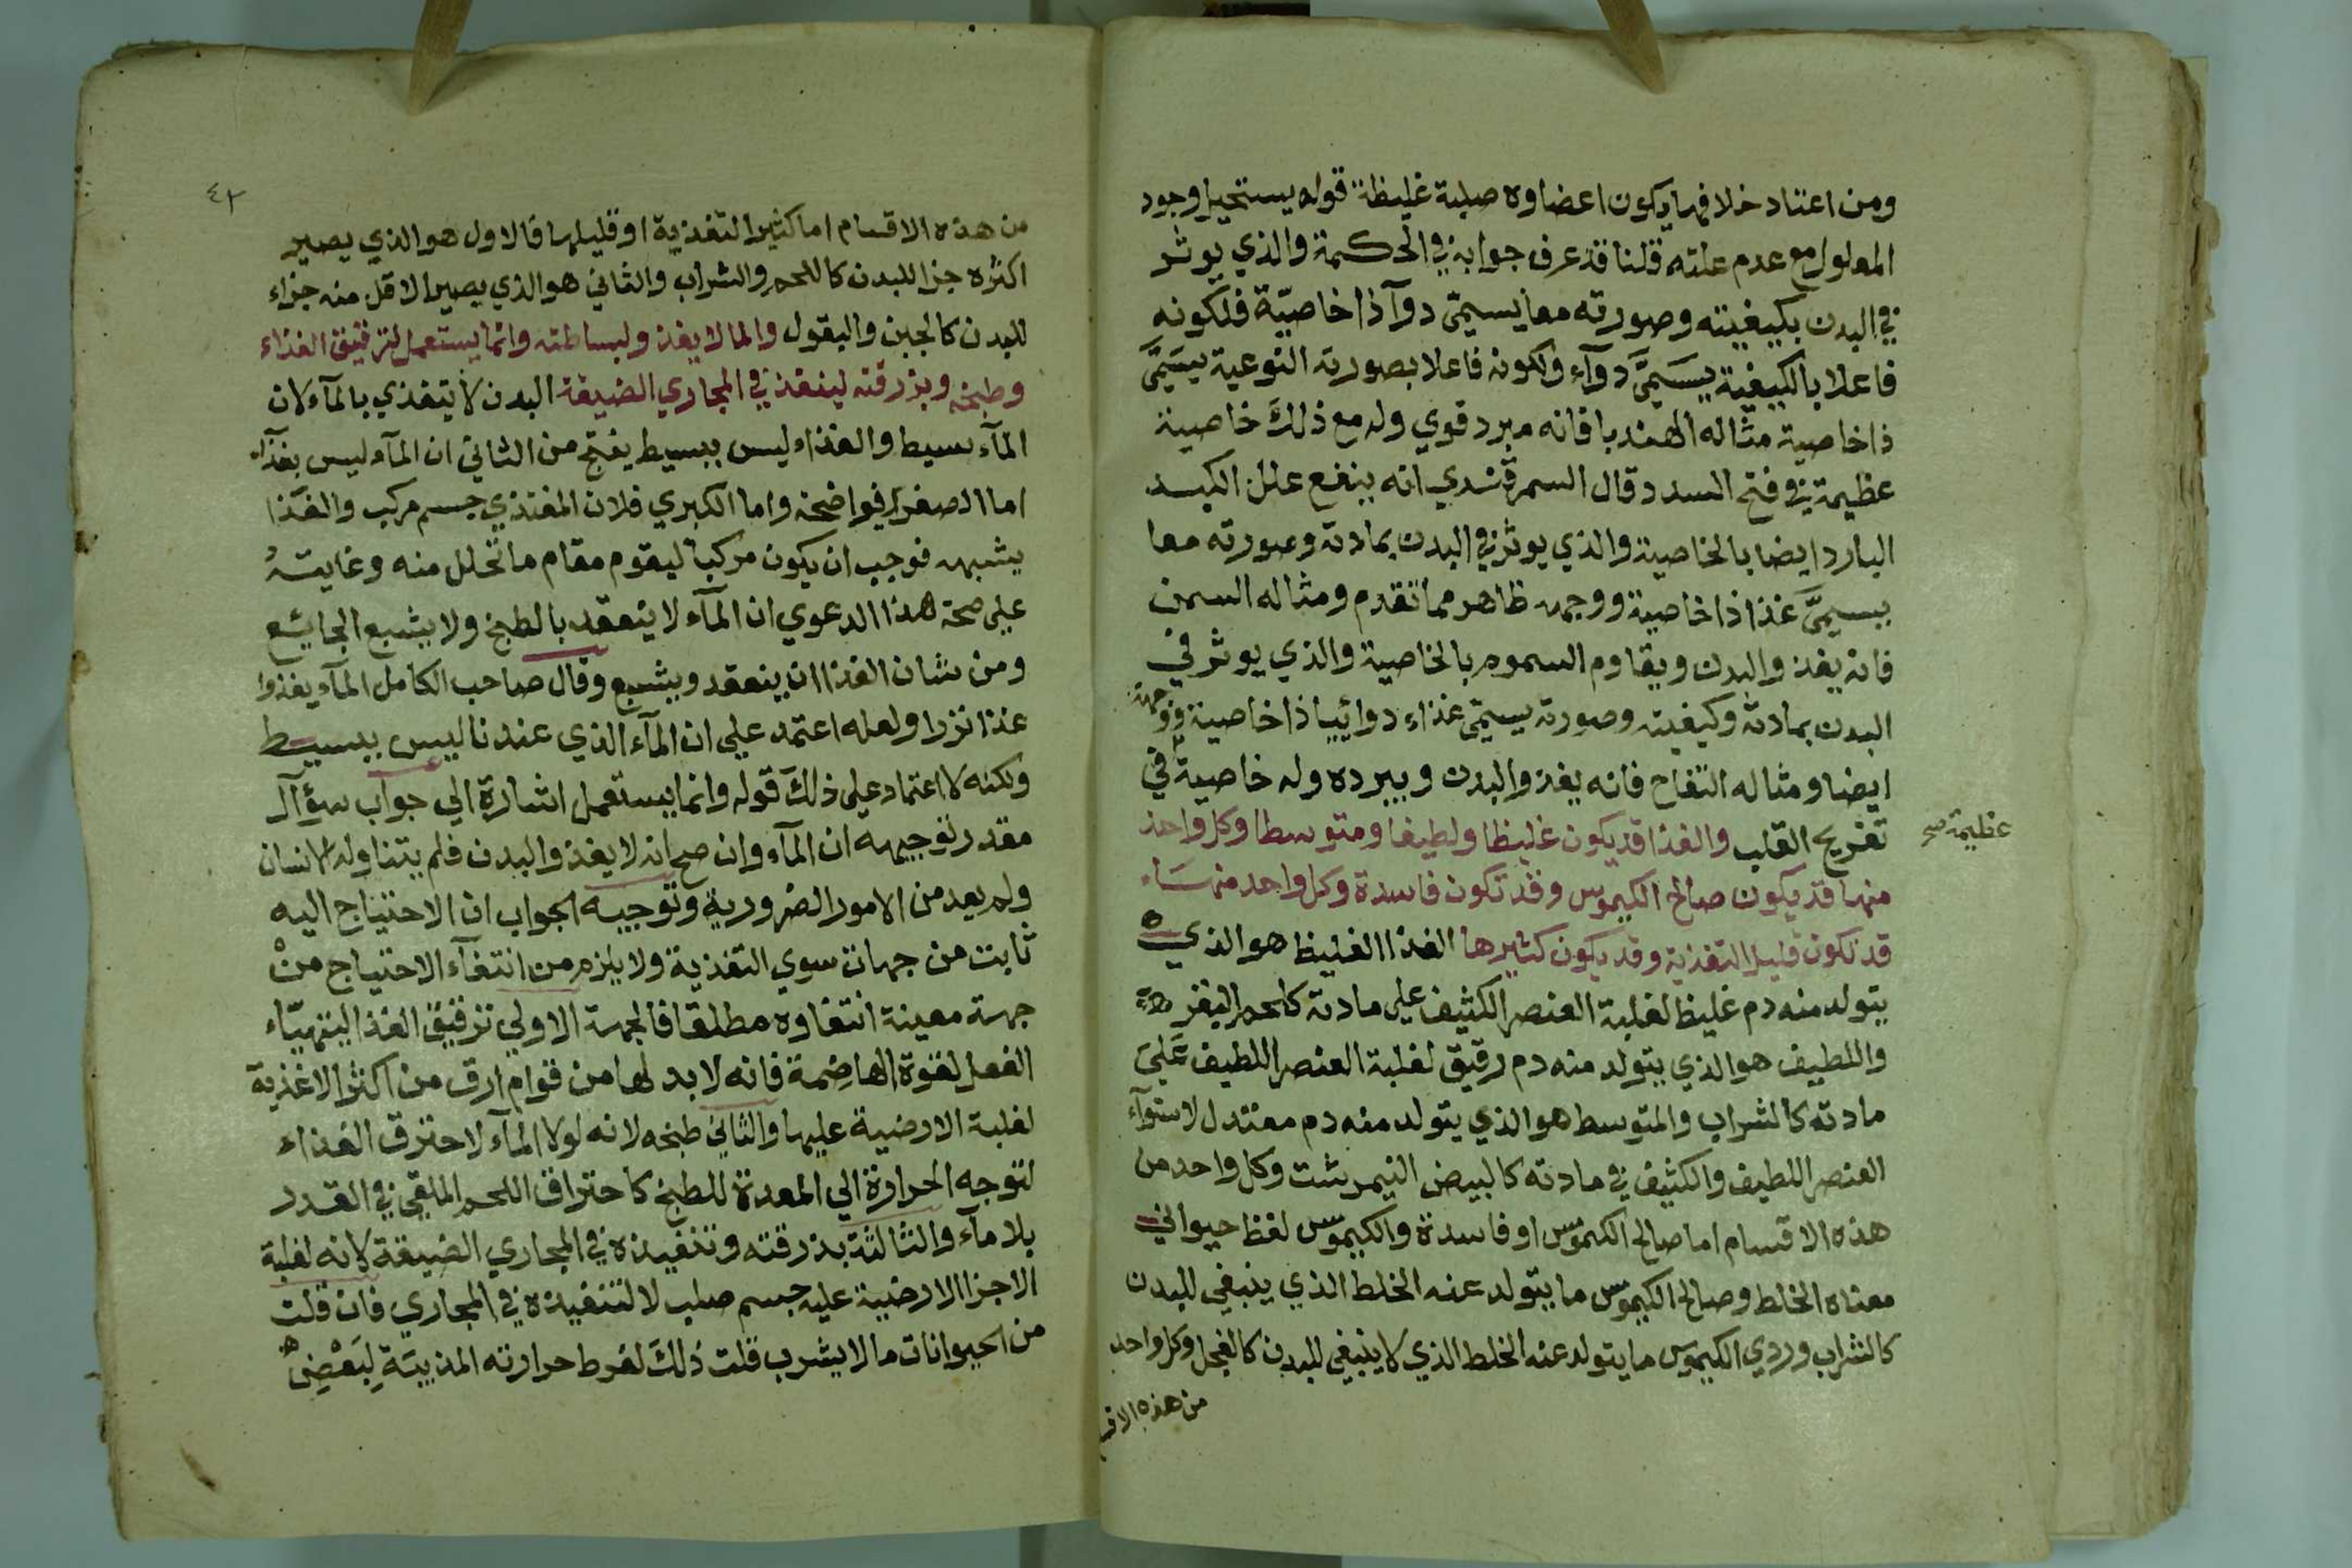 ومن اعتاد خلافها يكون اعضاوه صلبة غليظة قوله يستحيل وجود
المعلول مع عدم علته قلنا قد عرف جوابه في الحكمة والذي يوثر
في البدن بكيفيته وصورته معا يسمي دوآ ذا خاصيّة فلكونه
فاعلا بالكيفية يسَميَّ دوآء ولكونه فاعلا بصورته النوعية يسَميَّ
ذا خاصية مثاله الهندبا فانه مبرد قوي وله مع ذلك خاصية
عظيمة في فتح السدد قال السمرقندي انه ينفع علل الكبد
البارد ايضا بالخاصية والذي يوثر في البدن بمادته وصورته معا
يسميَّ غذا ذا خاصية ووجهه ظاهر مما تقدم ومثاله السمن
فانه يغذ والبدن ويقاوم السموم بالخاصية والذي يوثر في
البدن بمادته وكيفيته وصورته يسمي غذاء دوائيا ذا خاصية ووجهه
ايضا ومثاله التفاح فانه يغذ والبدن ويبرده وله خاصية في
عظيمة صح
تفريح القلب والغذا قد يكون غليظا ولطيفا ومتوسطا وكل واحد
منها قد يكون صالح الكيموس وقد تكون فاسدة وكل واحد منهسَاء
قد تكون قليل التغذية وقد يكون كثيرها الغذا الغليظ هو الذي
يتولد منه دم غليظ لغلبة العنصر الكثيف علي مادته كلحم البقر
واللطيف هو الذي يتولد منه دم رقيق لغلبة العنصر اللطيف عَليَ
مادته كالشراب والمتوسط هو الذي يتولد منه دم معتدل لاستوآء
العنصر اللطيف والكثيف في مادته كالبيض النيمرشت وكل واحد من
هذه الاقسام اما صالح الكيموس او فاسدة والكيموس لفظ حيواني
معناه الخلط وصالح الكيموس ما يتولد عنه الخلط الذي ينبغي للبدن
كالشراب وردي الكيموس ما يتولد عنه الخلط الذي لا ينبغي للبدن كالفجل وكل واحد
من هذه الاق
٤٢
من هذه الاقسام اما كثير التغذية او قليلها فالاول هو الذي يصير
اكثره جزا للبدن كاللحم والشراب والثاني هو الذي يصير الاقل منه جزاء
للبدن كالجبن والبقول والما لا يغذ ولبساطته وانما يستعمل لترقيق الغذاء
وطبخه وبزرقته لينفذ في المجاري الضيقة البدن لا يتغذي بالمآء لان
المآء بسيط والغذاء ليس ببسيط ينتج من الثاني ان المآء ليس بغذآء
اما الصغرا فواضحة واما الكبري فلان المغتذي جسم مركب والغذا
يشبهه فوجب ان يكون مركبا ليقوم مقام ما تحلل منه وغايته
علي صحة هذا الدعوي ان المآء لا ينعقد بالطبخ ولا يشبع الجايئع
ومن شان الغذا ان ينعقد ويشبع وقال صاحب الكامل المآء يغذوا
غذا نزرا ولعله اعتمد علي ان المآء الذي عندنا ليس ببسيط
ولكنه لا اعتماد علي ذلك قوله وانما يستعمل اشارة الي جواب سؤآل
مقدر توجيهه ان المآء وان صح انه لا يغذ والبدن فلم يتناوله الانسان
ولم يعد من الامور الضرورية وتوجيه الجواب ان الاحتياج اليه
ثابت من جهات سوي التغذية ولا يلزم من انتفآء الاحتياج منْ
جهة معينة انتفاوه مطلقا فالجهة الاولي ترقيق الغذا ليتهيّاء
الفعل لقوة الهاضِمة فانه لا بد لها من قوام ارق من اكثر الاغذية
لغلبة الارضية عليها والثاني طبخه لانه لولا المآء لاحترق الغذاء
لتوجه الحرارة الي المعدة للطبخ كاحتراق اللحم الملقي في القدر
بلا مآء والثالثة بذرقته وتنفيذه في المجاري الضيقة لانه لغلبة
الاجزا الارضية عليه جسم صلب لا لتنفيذه في المجاري فان قلت
من الحيوانات ما لا يشرب قلت ذلك لفرط حرارته المذيبَةِ لِبَعْضِ